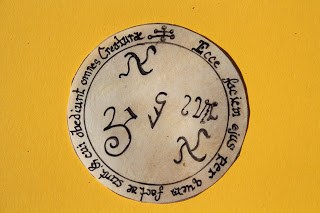 Ecce faciem ejus per quem factae sunt, & cui obediunt omnes Creaturæ